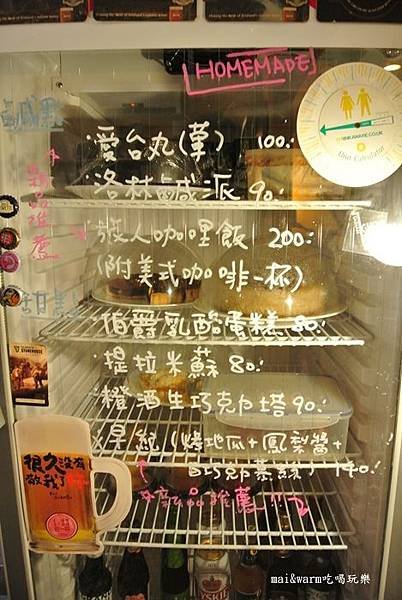 [HOMEMADE]
鹹點
·愛台丸(葷) 100.-
·洛林鹹派 90.-
新品推薦
·旅人咖哩飯 200.-
(附美式咖啡一杯)
甜點
·伯爵乳酪蛋糕 80.-
·提拉米蘇 80.-
·橙酒生巧克力塔 90.-
(烤地瓜+鳳梨醬+
140.-
新品推薦!!
很久沒有
敬我了
Unit Calculator
mai&warm吃喝玩樂